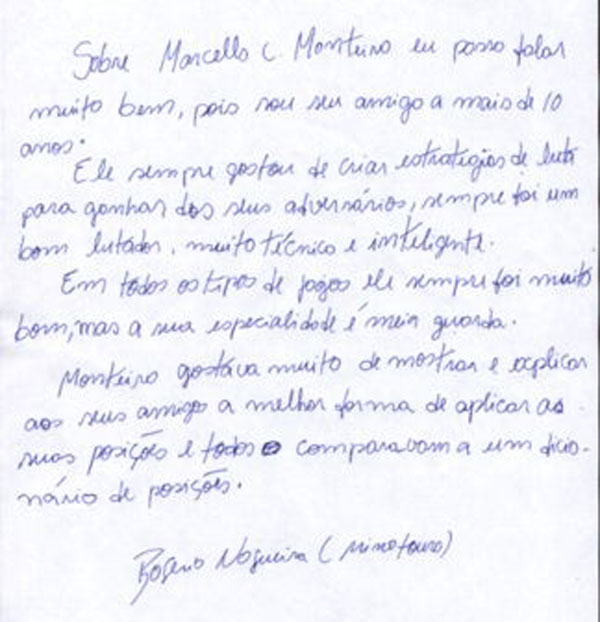 Sobre Marcello C. Monteiro eu posso falar
muito bem, pois sou seu amigo a mais de 10
anos.
Ele sempre gostou de criar estrategias de luta
para ganhar dos seus adversários, sempre foi um
bom lutador, muito técnico e inteligente.
Em todos os tipos de jogos ele sempre foi muito
bom, mas a sua especialidade é meia guarda.
Monteiro gostava muito de mostrar e explicar
aos seus amigo a melhor forma de aplicar as
suas posições e todos o comparavam a um dicio-
nário de posições.
Rogerio Nogueira (minotouro)